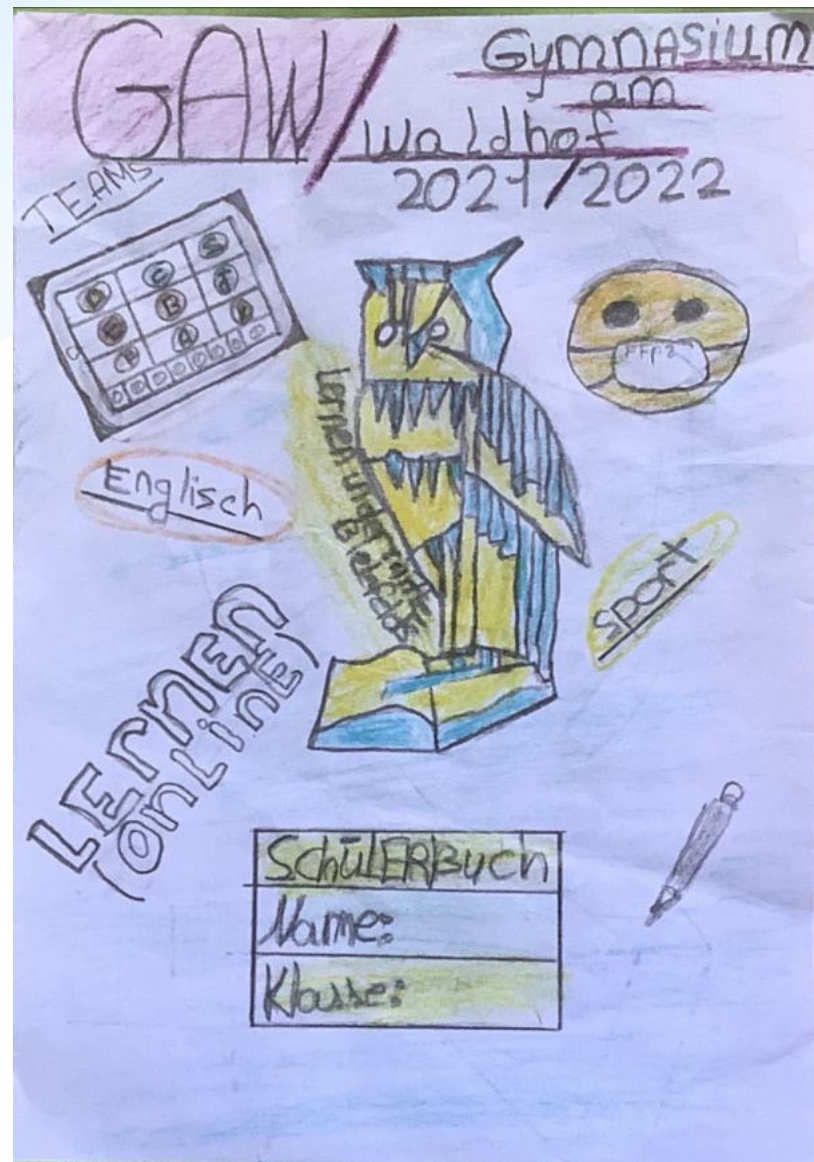 GAW/
GymnAsium
am
Waldhof
2021/2022
TEAMS
D C S
B
A
FFp2
Lernen
Englisch
Sport
LErnEn
(OnLinE)
SchüLERBuch
Name:
Klasse: